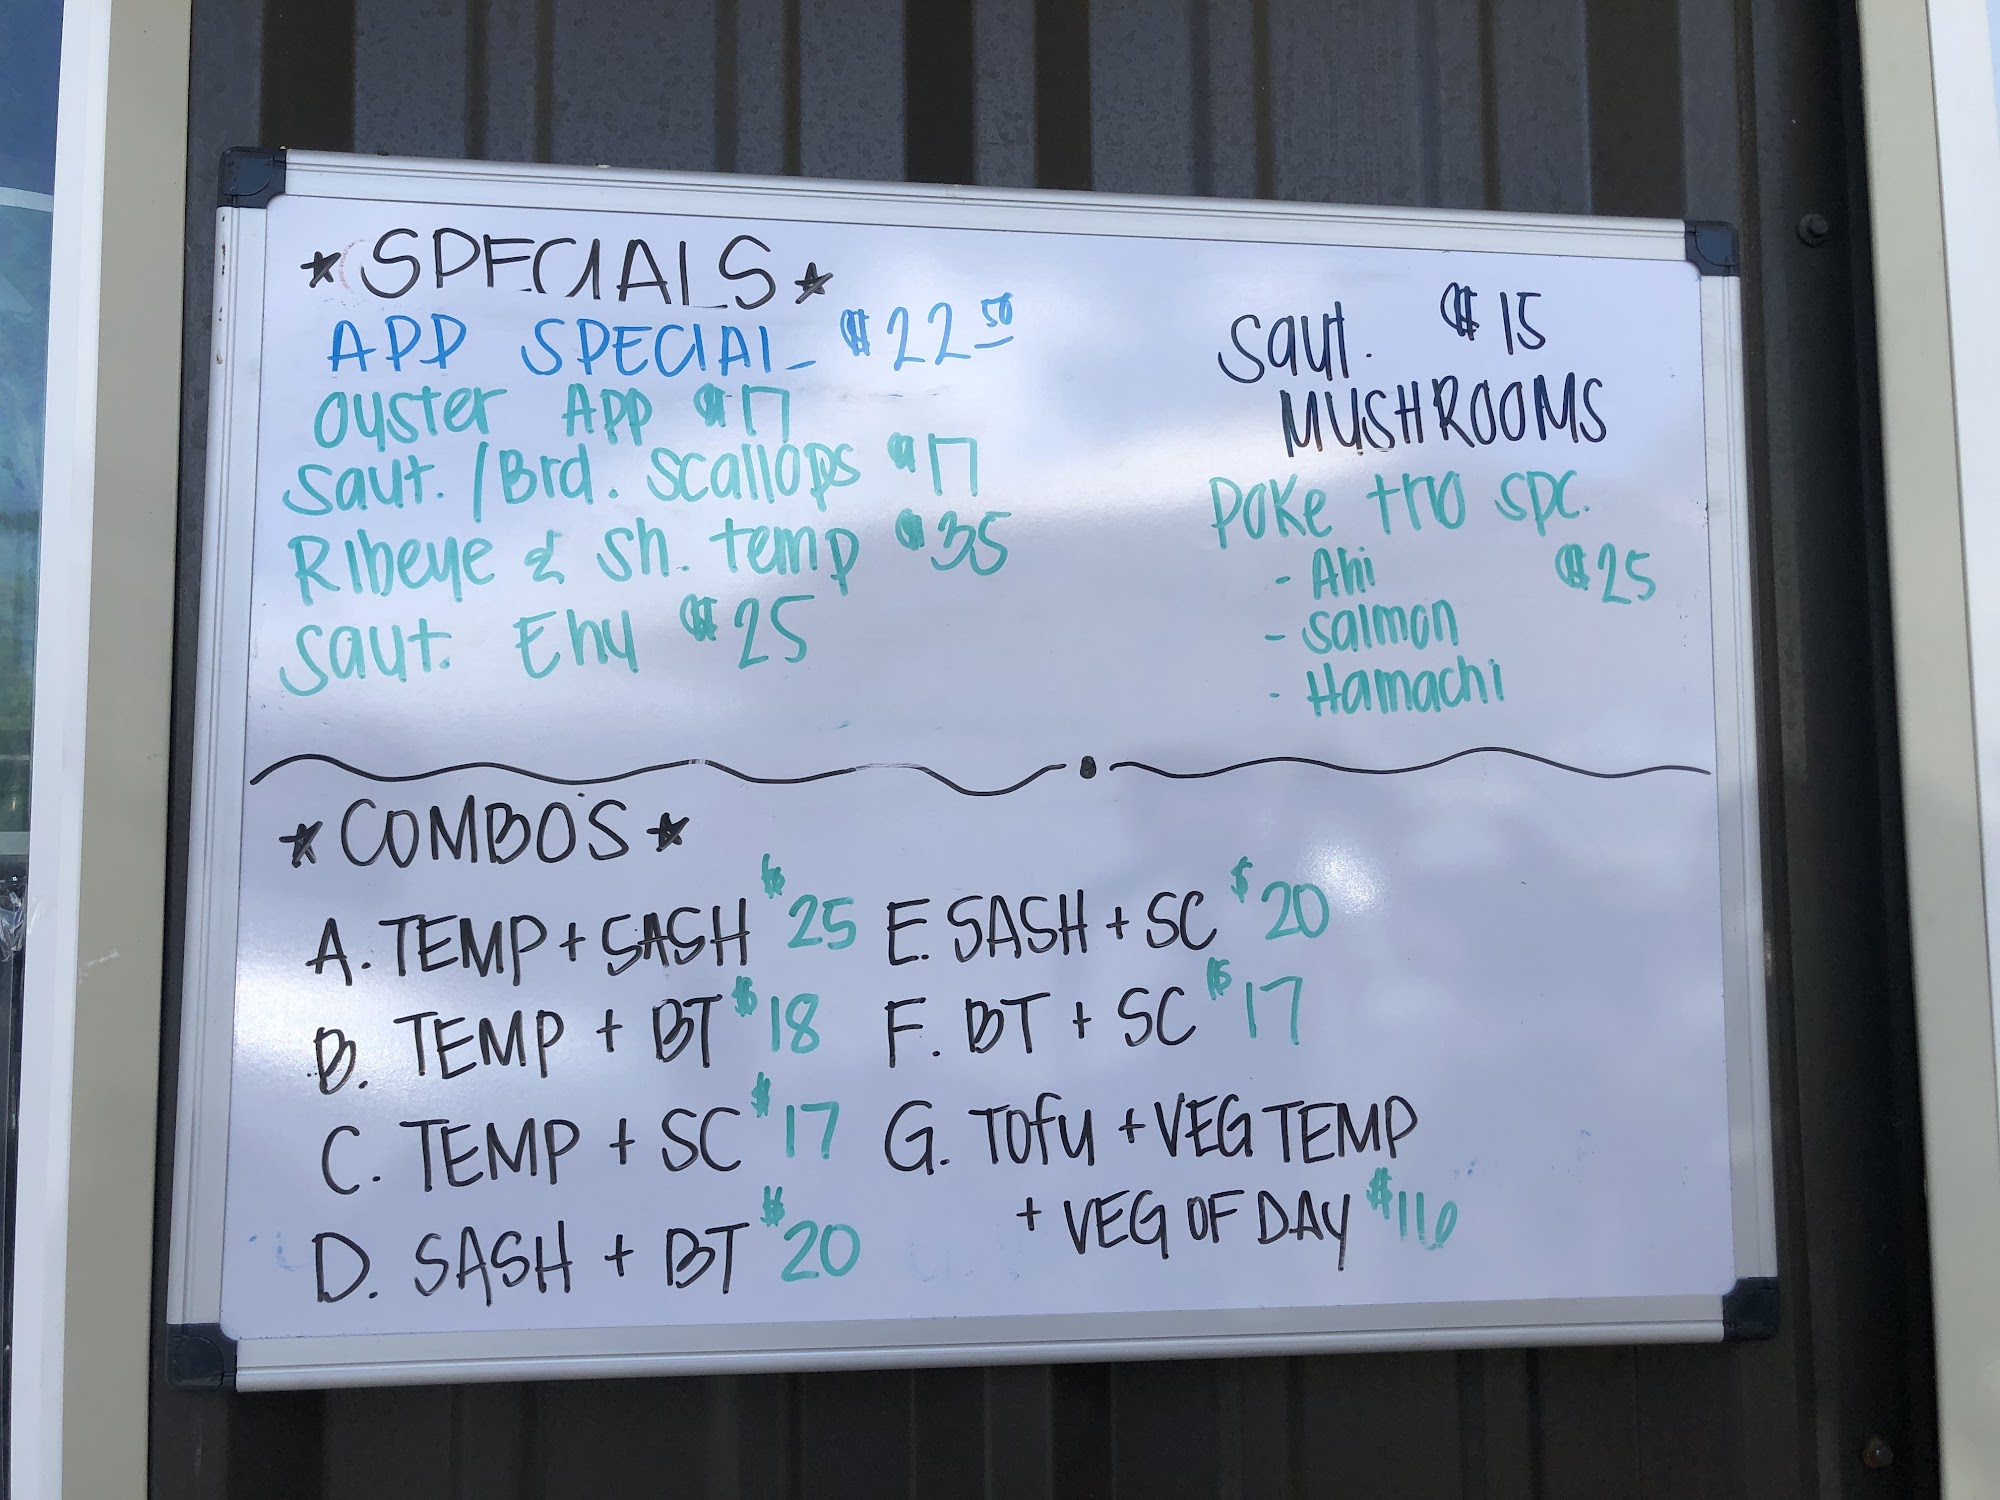 ★SPECIALS★
APP SPECIAL $22 50
Oyster APP $17
Saut. /Brd. Scallops $17
Ribeye & Sh. temp $35
Saut. Ehu $25
Saut. $15
MUSHROOMS
Poke trio spc.
- Ahi $25
- Salmon
- Hamachi
★COMBO'S★
A. TEMP + SASH $25
B. TEMP + BT $18
C. TEMP + SC $17
D. SASH + BT $20
E. SASH + SC $20
F. BT + SC $17
G. TOfu + VEG TEMP
+ VEG OF DAY $16